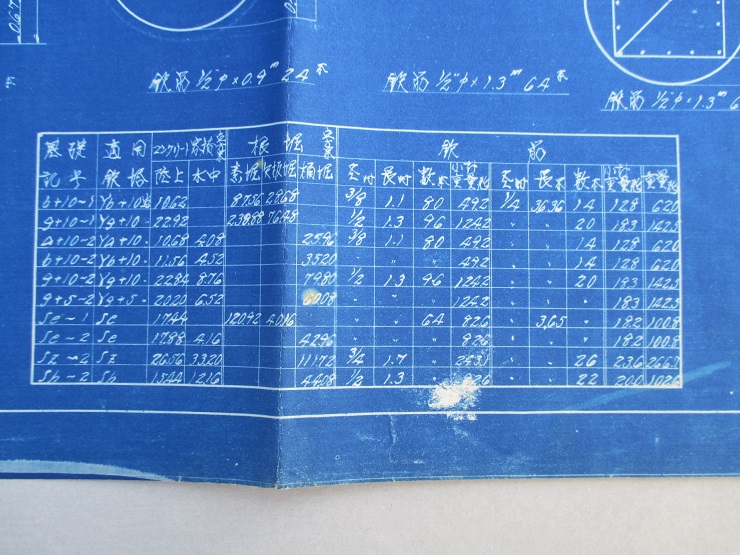 0.67
鉄筋 ½"φ×0.9ᵐ 24本
鉄筋 ½"φ×1.3ᵐ 64本
鉄筋 ½"φ×1.3ᵐ 6
基礎 適用 コンクリート 根堀 鉄筋
記号 鉄塔 陸上 水中 素堀 矢板堀 桶堀 本数 本数
b+10~1 Yb+10 10.62 87.56 29.68 3/8 1.1 80 49.2 1/4 36.36 14 12.8 62.0
g+10~1 Yg+10 22.92 76.48 1/2 1.3 96 124.2 〃 〃 20 18.3 142.5
a+10~2 Ya+10 10.68 4.08 25.96 3/8 1.1 80 49.2 〃 〃 14 12.8 62.0
b+10~2 Yb+10 11.56 4.52 35.20 〃 〃 〃 49.2 〃 〃 14 12.8 62.0
g+10~2 Yg+10 22.84 8.76 79.80 1/2 1.3 96 124.2 〃 〃 20 18.3 142.5
g+5~2 Yg+5 20.20 6.52 60.08 〃 〃 〃 124.2 〃 〃 〃 18.3 142.5
Se~1 Se 17.44 120.92 40.16 〃 〃 64 82.6 〃 3.65 〃 18.2 100.8
Se~2 Se 17.88 4.16 42.96 〃 〃 〃 82.6 〃 〃 〃 18.2 100.8
Sz~2 Sz 26.56 33.20 117.72 3/4 1.7 〃 243.1 〃 〃 26 23.6 266.7
Sh~2 Sh 13.44 12.16 44.08 1/2 1.3 〃 82.6 〃 〃 22 20.0 102.6